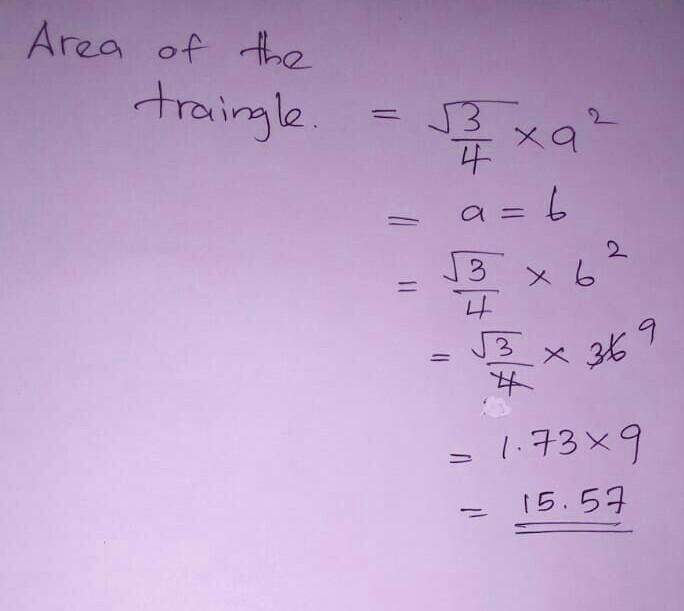 Area of the
traingle. = √3/4 × a²
= a = 6
= √3/4 × 6²
= √3/4 × 36 9
= 1.73 × 9
= 15.57